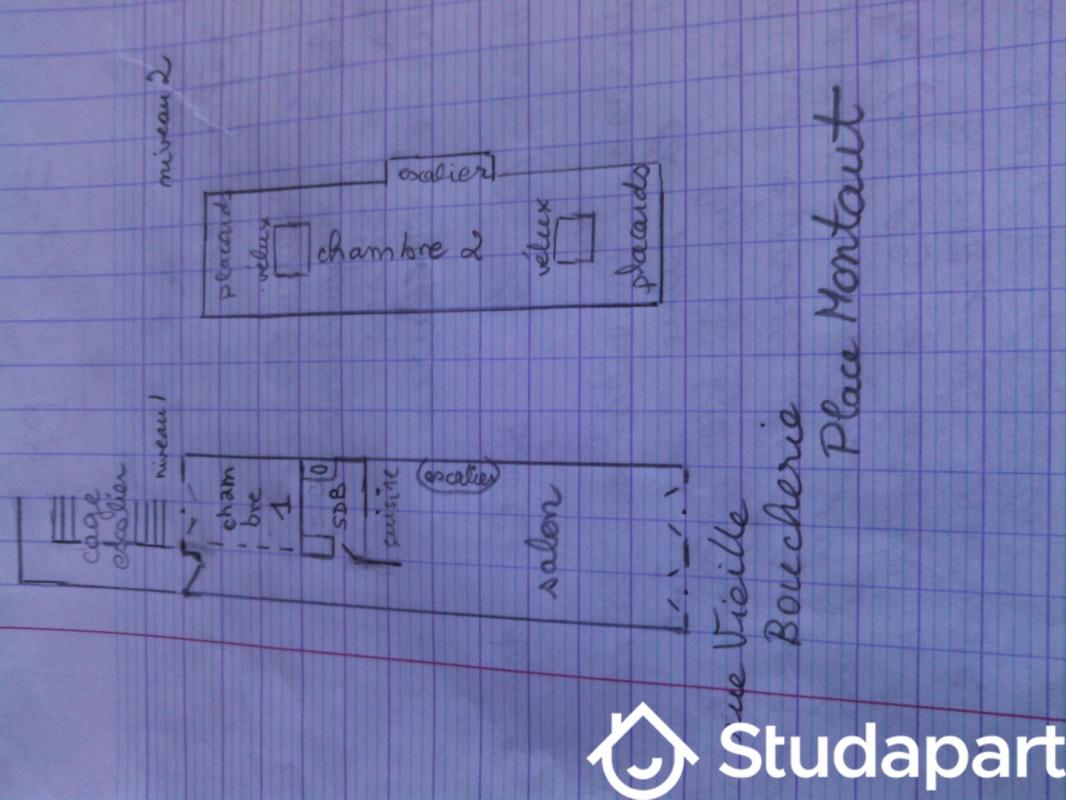 niveau 2
placards
vélux
chambre 2
escalier
vélux
placards
niveau 1
cage
escalier
cham
bre
1
SDB
cuisine
escalier
salon
rue Vieille
Boucherie
Place Montaut
Studapart